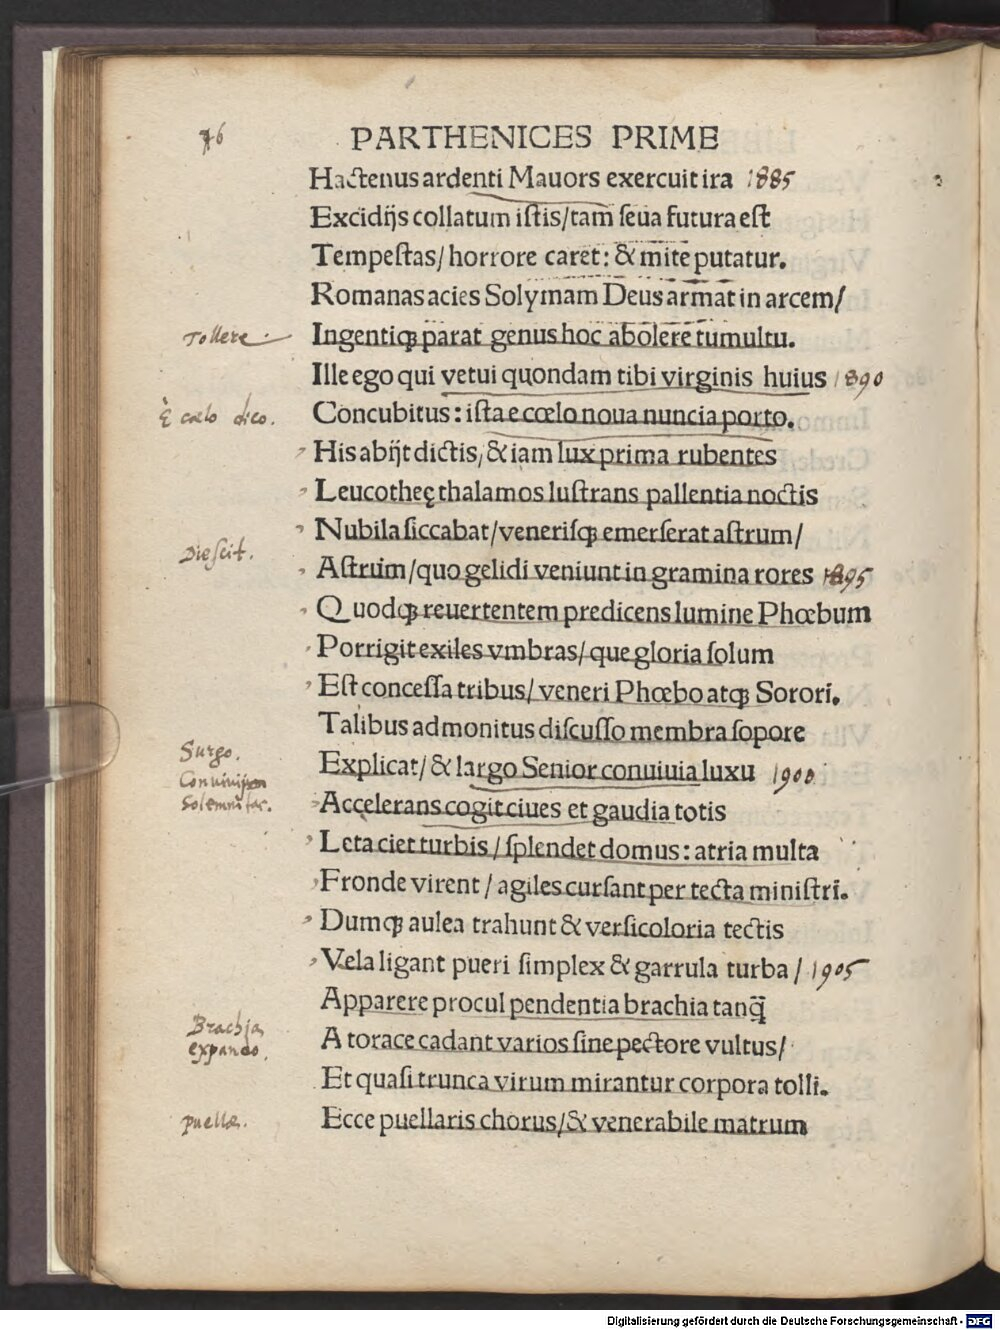 76
PARTHENICES PRIME
Hactenus ardenti Mauors exercuit ira 1885
Excidijs collatum istis/tam seua futura est
Tempestas/horrore caret: & mite putatur.
Romanas acies Solymam Deus armat in arcem/
Tollere
Ingentiqꝫ parat genus hoc abolere tumultu.
Ille ego qui vetui quondam tibi virginis huius 1890
È cœlo dico.
Concubitus: ista e cœlo noua nuncia porto.
His abijt dictis/& iam lux prima rubentes
Leucotheę thalamos lustrans pallentia noctis
Nubila siccabat/venerisqꝫ emerserat astrum/
Diescit.
Astrum/quo gelidi veniunt in gramina rores 1895
Quodqꝫ reuertentem predicens lumine Phœbum
Porrigit exiles vmbras/que gloria solum
Est concessa tribus/veneri Phœbo atqꝫ Sorori.
Talibus admonitus discusso membra sopore
Surgo.
Explicat/& largo Senior conuiuia luxu 1900
Conuiuium
Solemnitas.
Accelerans cogit ciues et gaudia totis
Leta ciet turbis/splendet domus: atria multa
Fronde virent/agiles cursant per tecta ministri.
Dumqꝫ aulea trahunt & versicoloria tectis
Vela ligant pueri simplex & garrula turba/1905
Apparere procul pendentia brachia tanq̃
Brachia
expando.
A torace cadant varios sine pectore vultus/
Et quasi trunca virum mirantur corpora tolli.
puellæ.
Ecce puellaris chorus/& venerabile matrum
Digitalisierung gefördert durch die Deutsche Forschungsgemeinschaft - DFG